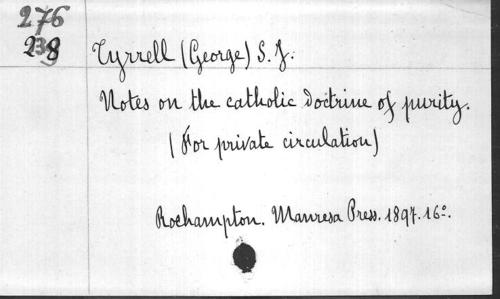 276
238
Tyrrell (George) S.J.
Notes on the catholic doctrine of purity.
(For private circulation)
Roehampton. Manresa Press. 1897. 16º.